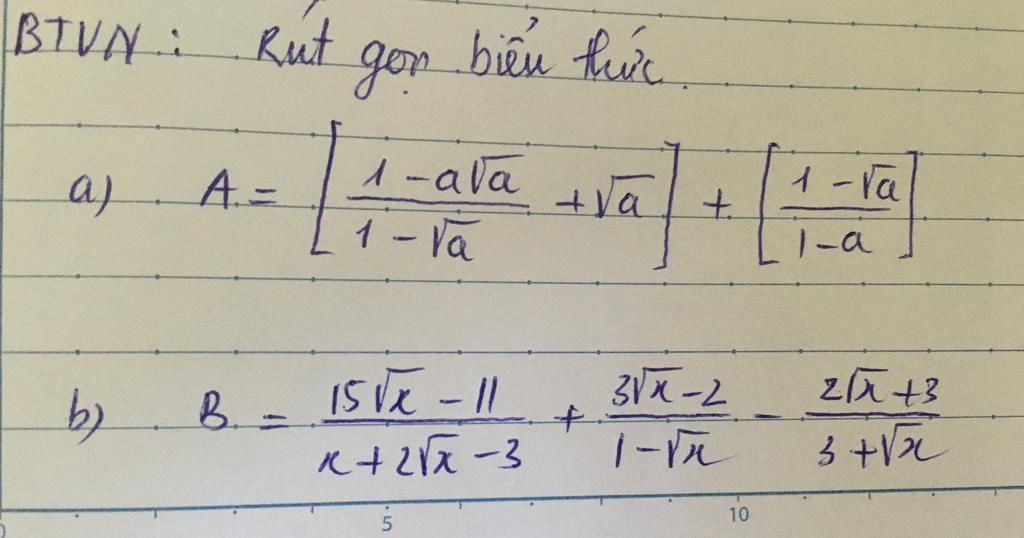 BTVN : Rút gọn biểu thức.
a) A = [ (1 - a√a)/(1 - √a) + √a ] + [ (1 - √a)/(1 - a) ]
b) B = (15√x - 11)/(x + 2√x - 3) + (3√x - 2)/(1 - √x) - (2√x + 3)/(3 + √x)
0 5 10